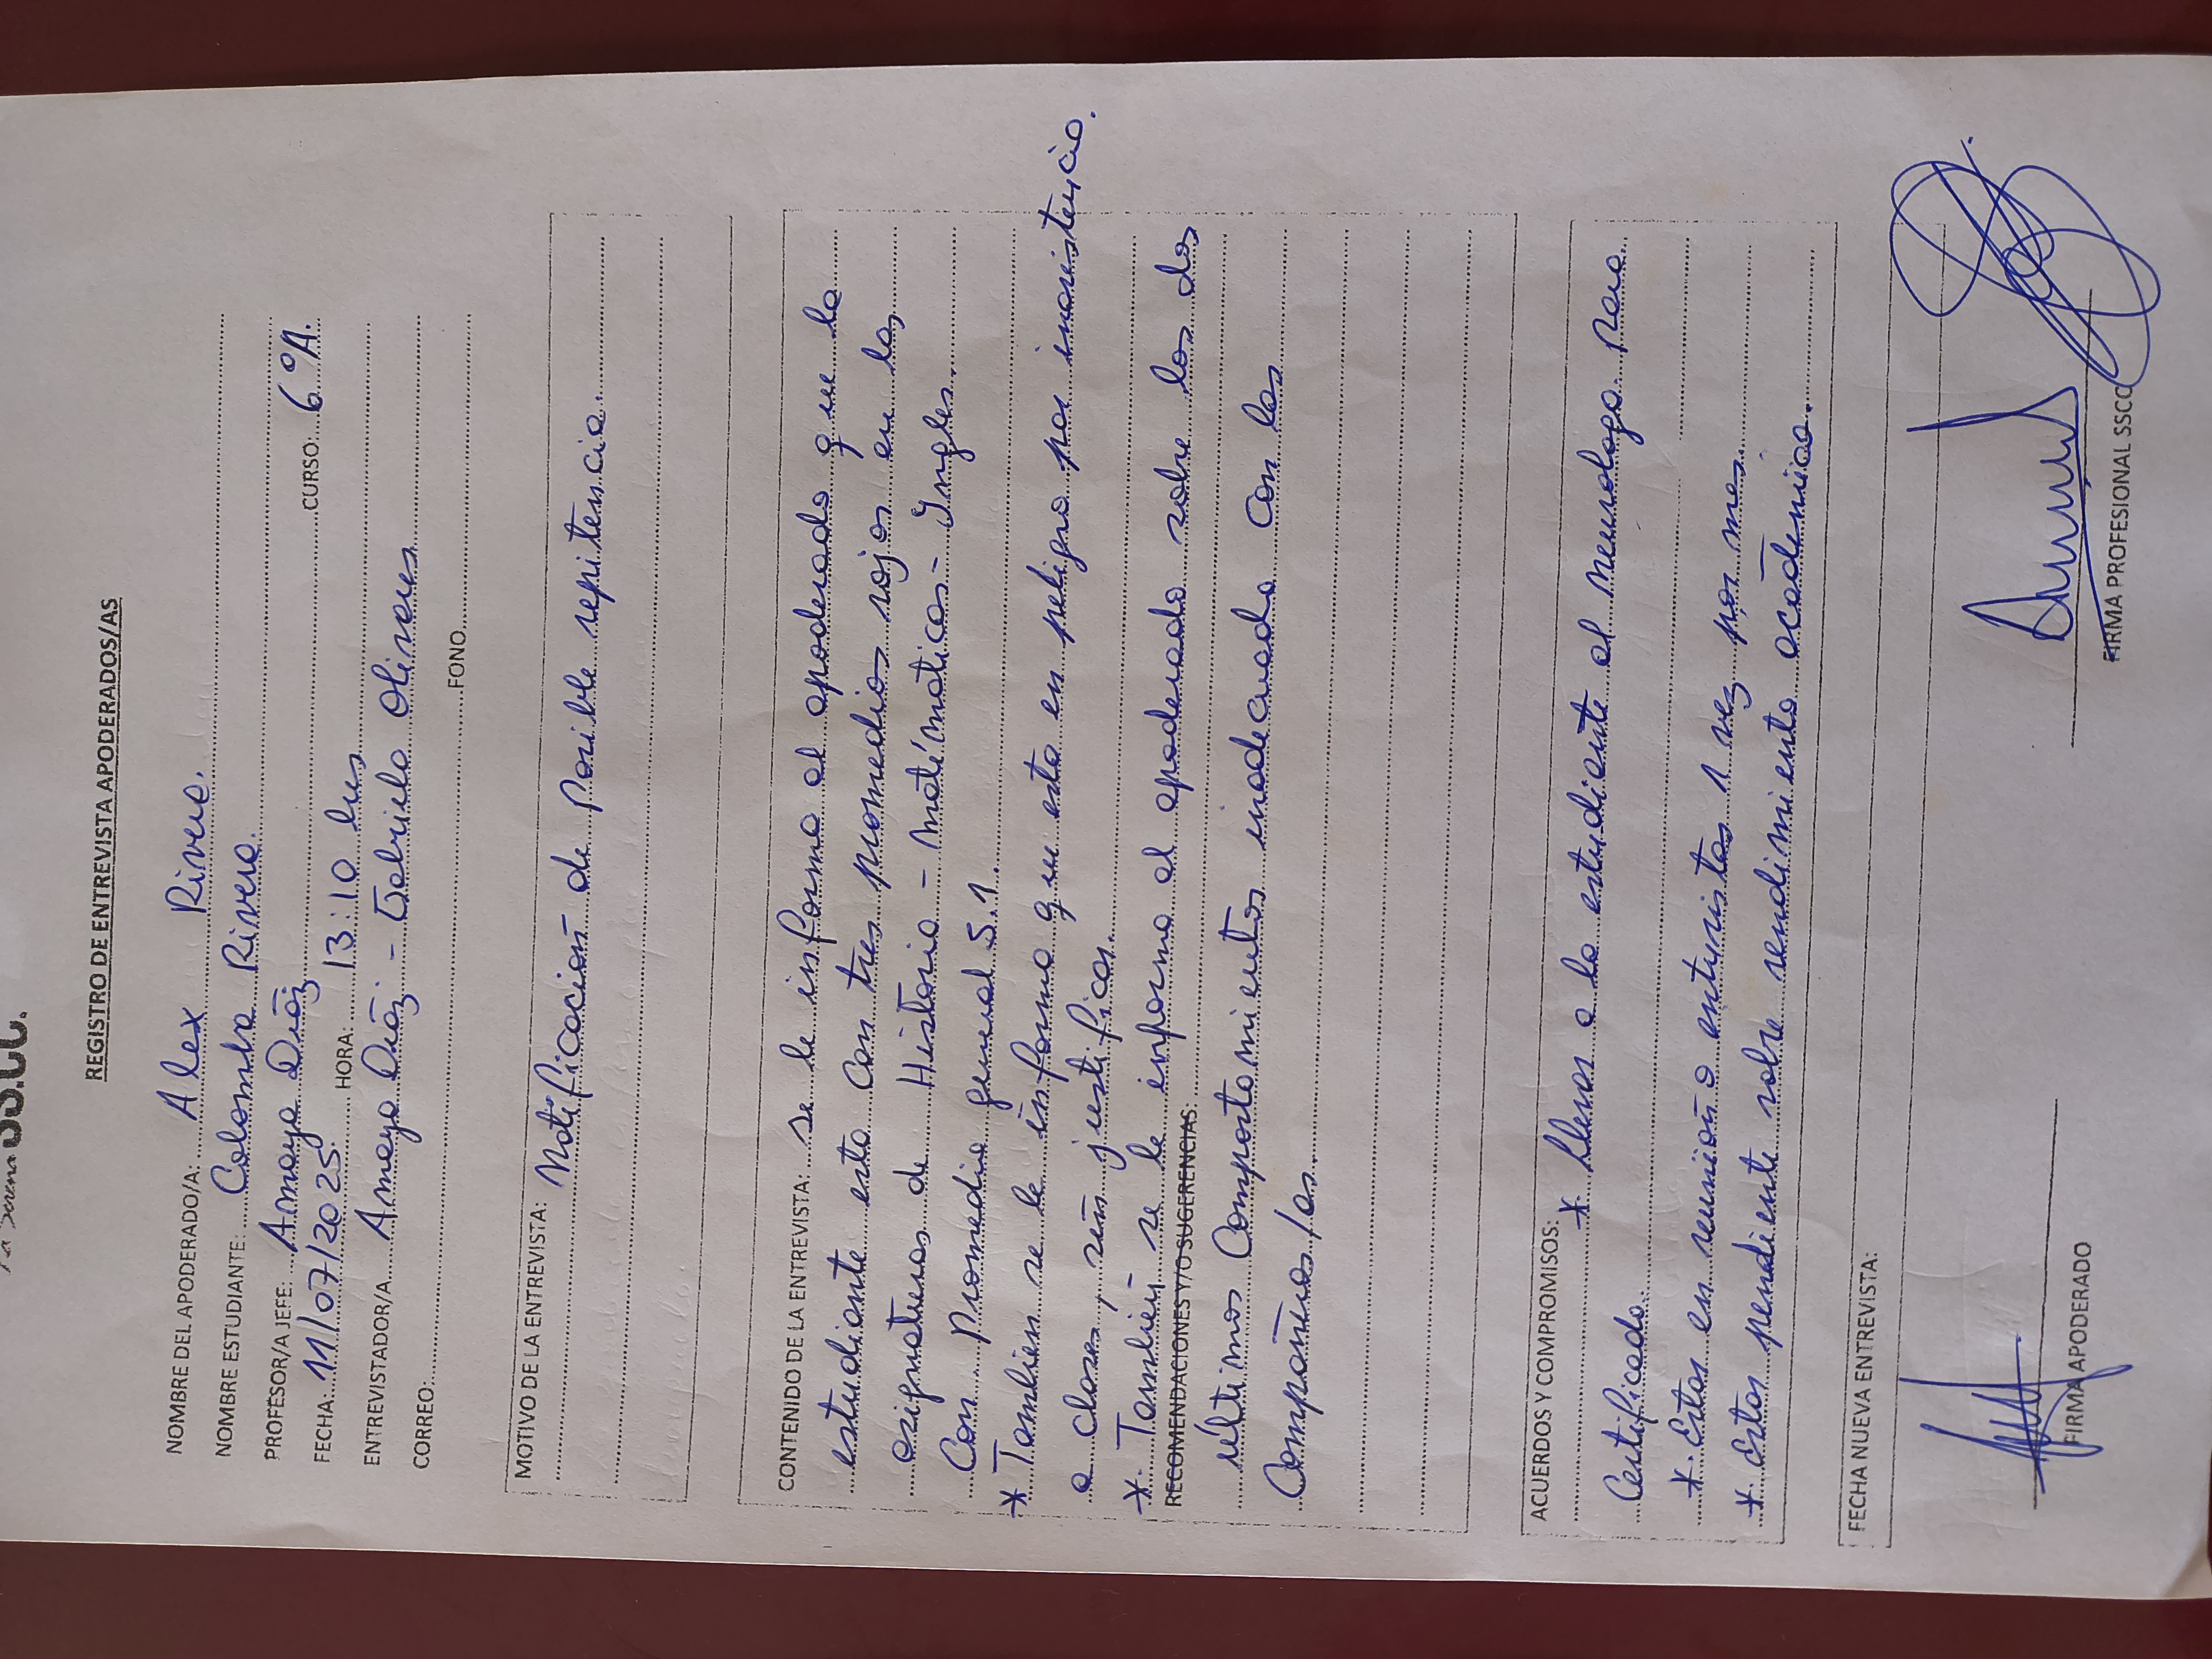 La Serena SS.CC.
REGISTRO DE ENTREVISTA APODERADOS/AS
NOMBRE DEL APODERADO/A: Alex Rivera.
NOMBRE ESTUDIANTE: Colomba Rivera.
PROFESOR/A JEFE: Amaya Díaz CURSO: 6°A.
FECHA: 11/07/2025 HORA: 13:10 hrs
ENTREVISTADOR/A Amaya Díaz - Gabriela Olivares
CORREO: FONO
MOTIVO DE LA ENTREVISTA: Notificación de Posible repitencia.
CONTENIDO DE LA ENTREVISTA: se le informa al apoderado que la
estudiante esta con tres promedios rojos en las
asignaturas de Historia - matématicas - Ingles.
Con Promedio general 5.1.
* Tambien se le informa que esta en peligro por inasistencia.
a clases, sin justificar.
* También se le informa al apoderado sobre los dos
RECOMENDACIONES Y/O SUGERENCIAS:
últimos Comportamientos inadecuado Con las
Compañeras/os.
ACUERDOS Y COMPROMISOS: * Llevar a la estudiante al neurologo para
Certificado.
* Estar en reunión o entrevistas 1 vez por mes.
* estar pendiente sobre rendimiento académico.
FECHA NUEVA ENTREVISTA:
FIRMA APODERADO FIRMA PROFESIONAL SSCC